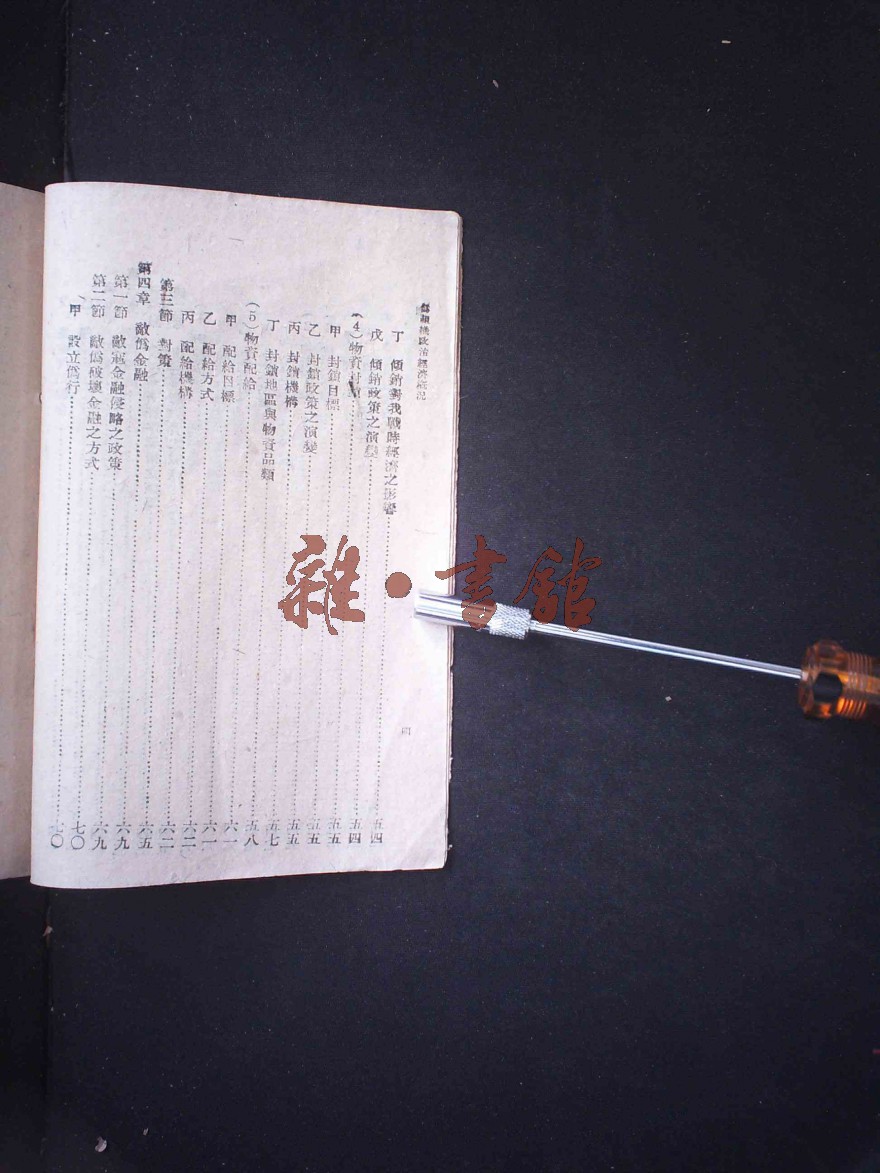 政治經濟概況
四
丁 傾銷對我戰時經濟之影響……五四
戊 傾銷政策之演變……五四
(4)物資封鎖……五五
甲 封鎖目標……五五
乙 封鎖政策之演變……五五
丙 封鎖機構……五七
丁 封鎖地區與物資品類……五八
(5)物資配給……六一
甲 配給目標……六一
乙 配給方式……六二
丙 配給機構……六二
第三節 對策……六五
第四章 敵偽金融……六九
第一節 敵寇金融侵略之政策……六九
第二節 敵偽破壞金融之方式……七〇
甲 設立偽行……七〇
雜·書館